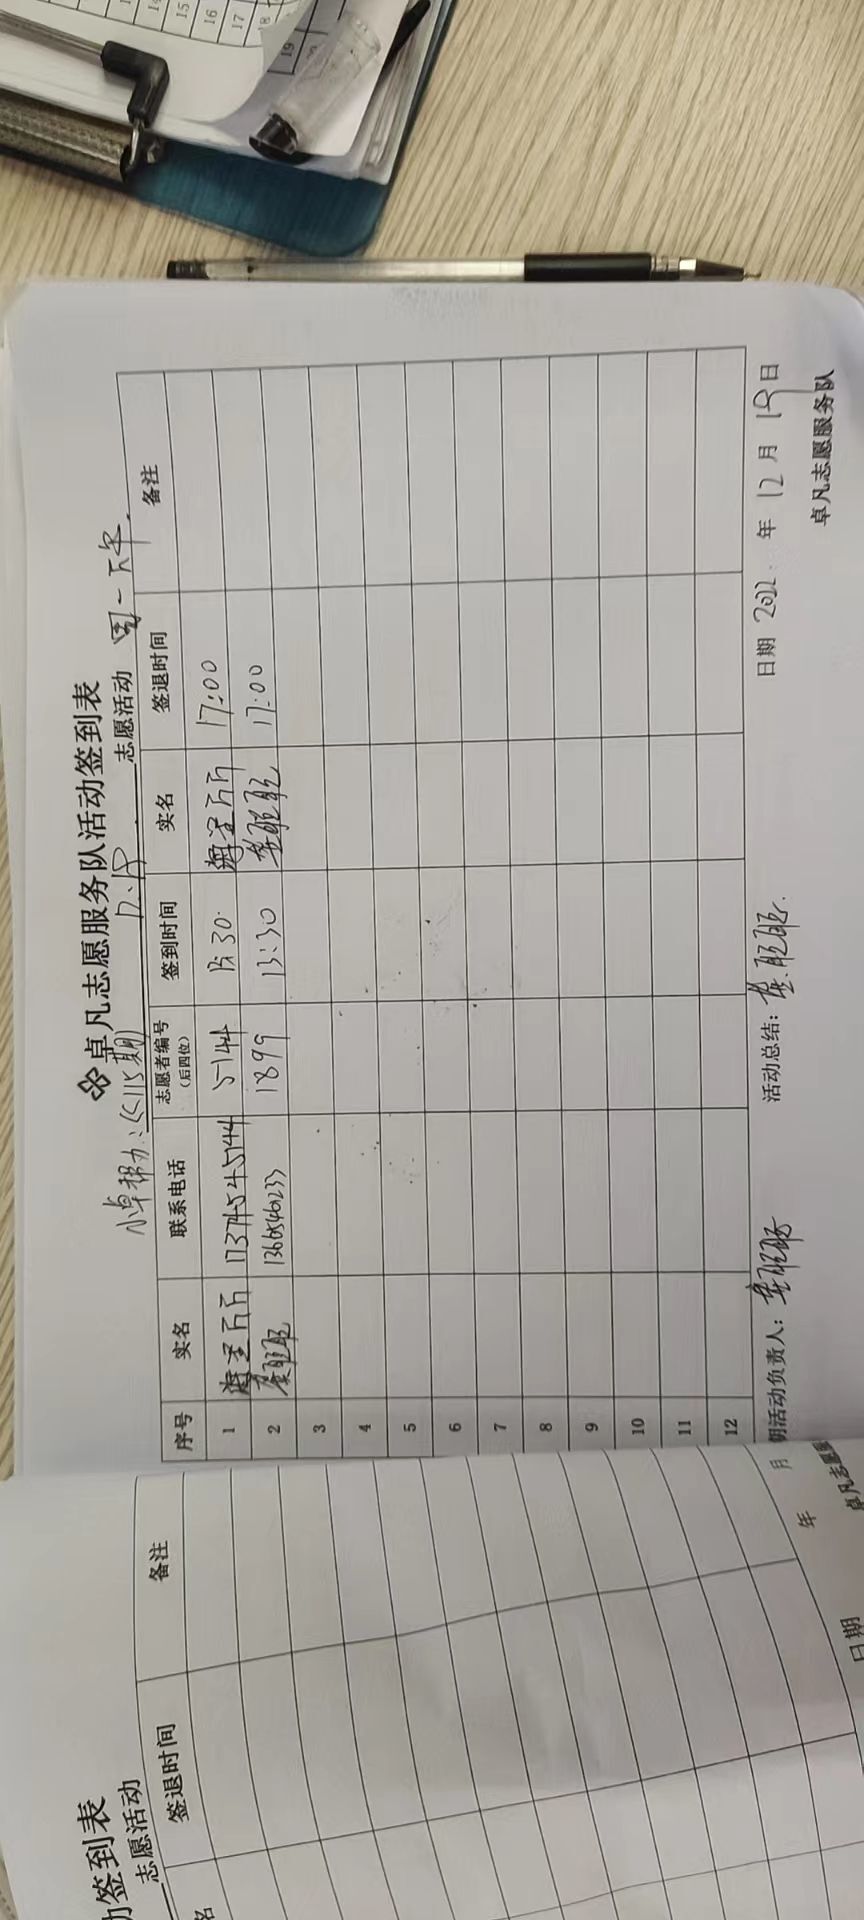 卓凡志愿服务队活动签到表
小卓帮办:《115期 12.19. 志愿活动 周一下午.
序号 实名 联系电话 志愿者编号（后四位） 签到时间 实名 签退时间 备注
1 万万 17374545144 5144 13:30. 万万 17:00
2 1899 13:30 17:00
3
4
5
6
7
8
9
10
11
12
期活动负责人: 活动总结: 日期 2022. 年 12 月 19 日
卓凡志愿服务队
动签到表
志愿活动
名 签退时间 备注
日期 年 月
卓凡志愿服
15
16
17
18
19